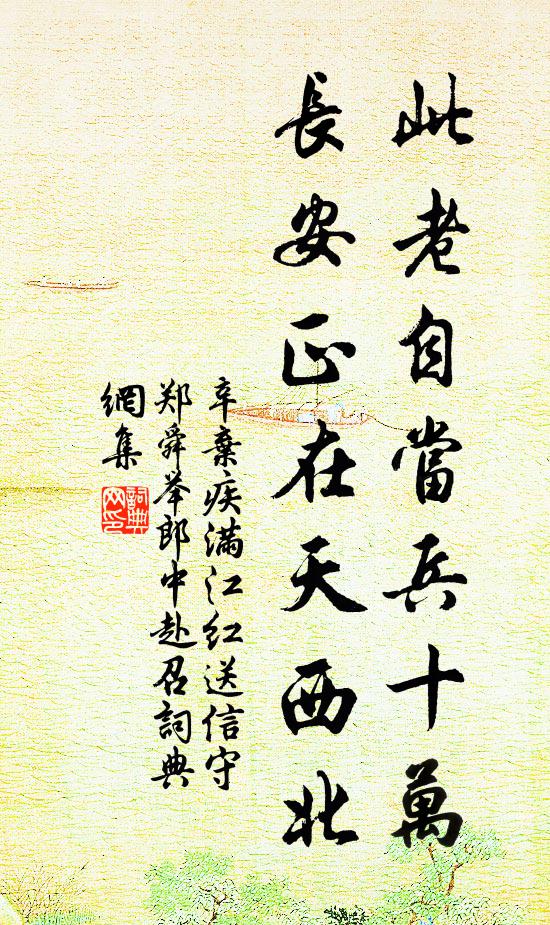 此老自當兵十萬
長安正在天西北
辛棄疾满江红送信守
郑舜举郎中赴召詞典
網集
詞典
网印